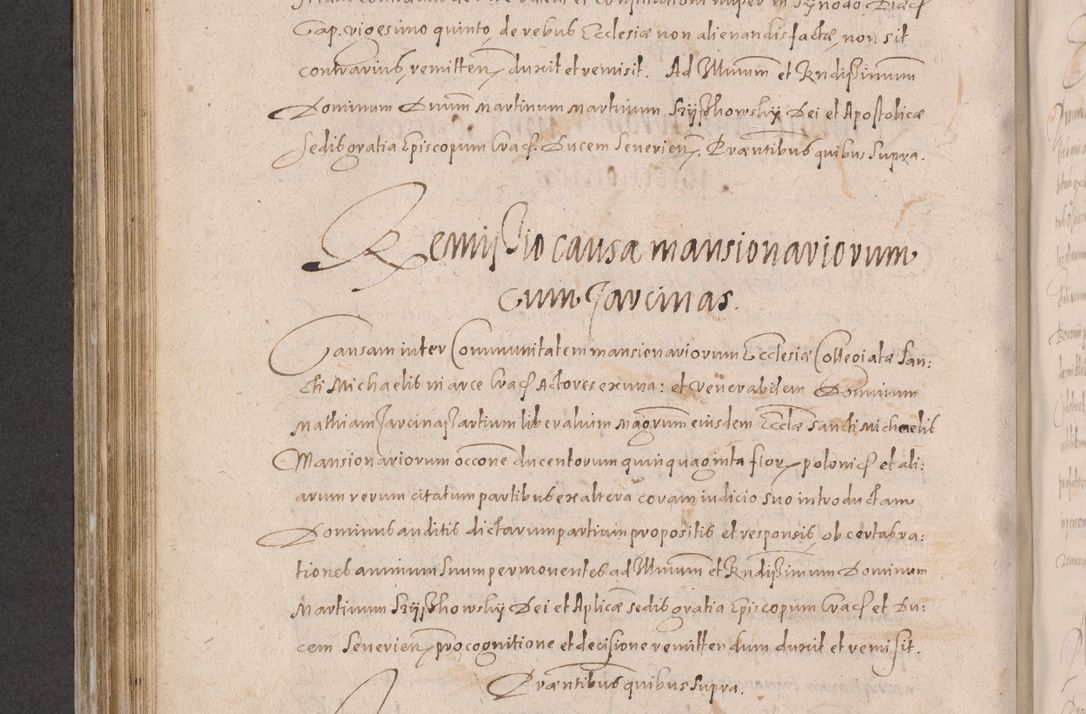 Cap. vigesimo quinto, de rebus Ecclesiæ non alienandis factæ, non sit
contrarius, remitten duxit et remisit. Ad Illmum et Rndissimum
Dominum Dnum Martinum Martinum Szyszkowsky Dei et Apostolicæ
Sedis gratia Episcopum Crac. Ducem Severien. Præntibus quibus supra.
Remissio causæ mansionariorum
cum Jarcinas.
Causam inter Communitatem mansionariorum Ecclesiæ Collegiatæ San:
cti Michaelis in arce Crac. Actores ex una: et venerabilem Dominum
Mathiam Jarcinas artium liberalium Magrum eiusdem Ecclæ Sancti Michaelis
Mansionariorum occone ducentorum quinquaginta flor. polonic. et ali:
arum rerum citatum partibus ex altera coram iudicio suo introductam
Dominus auditis dictarum partium propositis et responsis, ob certas ra:
tiones animum suum permoventes ad Illmum et Rndissimum Dominum
Martinum Szyszkowsky Dei et Aplicæ sedis gratia Episcopum Crac. et Du:
cem Severien. pro cognitione et decisione remittendum duxit et remisit.
Præntibus quibus supra.